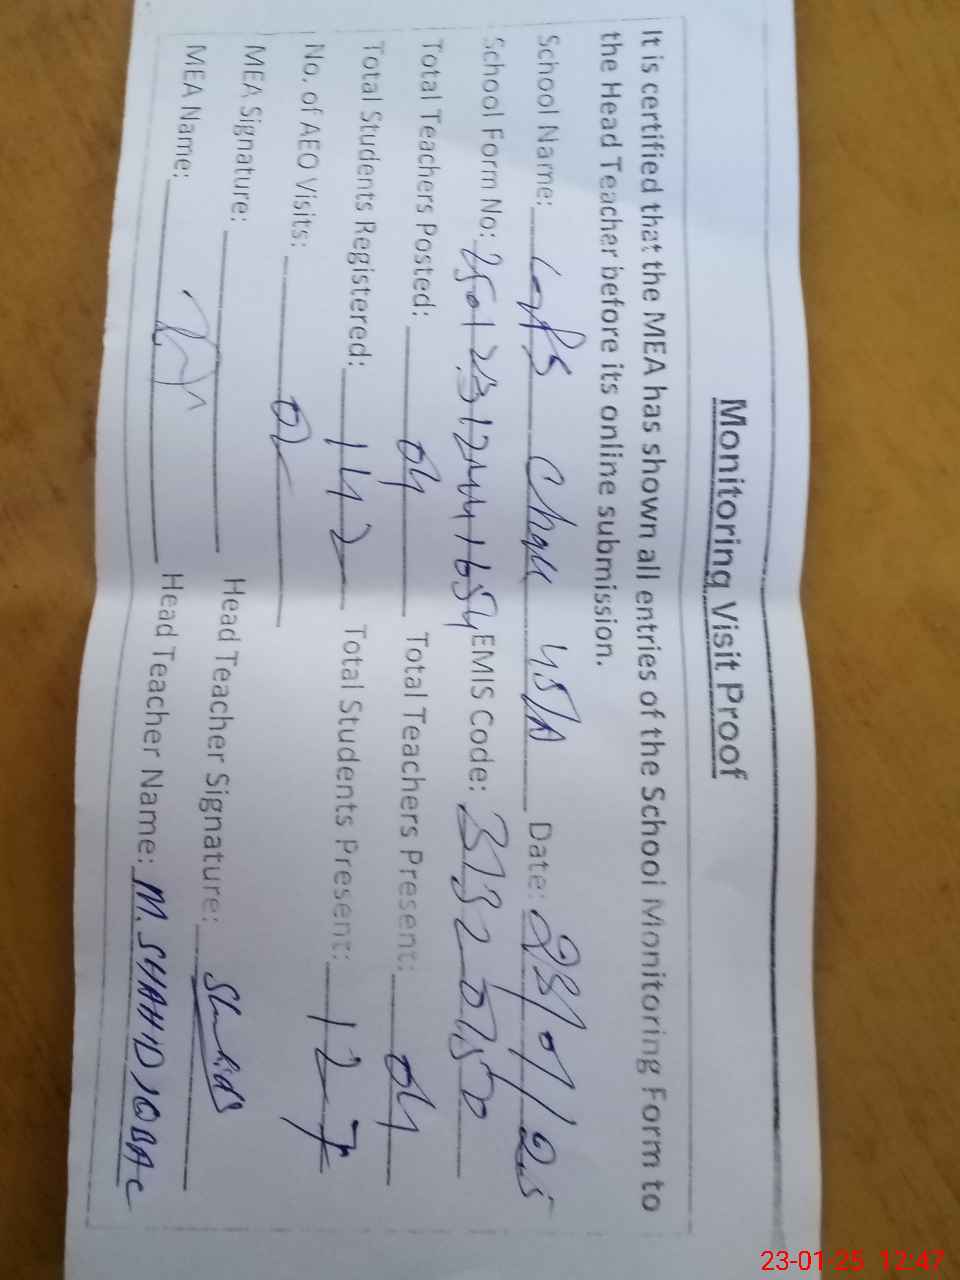 Monitoring Visit Proof
It is certified that the MEA has shown all entries of the School Monitoring Form to
the Head Teacher before its online submission.
School Name: GPS Chak 45/A Date: 23/01/25
School Form No: EMIS Code: 31320150
Total Teachers Posted: 04 Total Teachers Present: 04
Total Students Registered: 142 Total Students Present: 127
No. of AEO Visits: 02
MEA Signature: Head Teacher Signature: Shahid
MEA Name: Head Teacher Name: M. SHAHID IQBAL
23-01-25 12:47